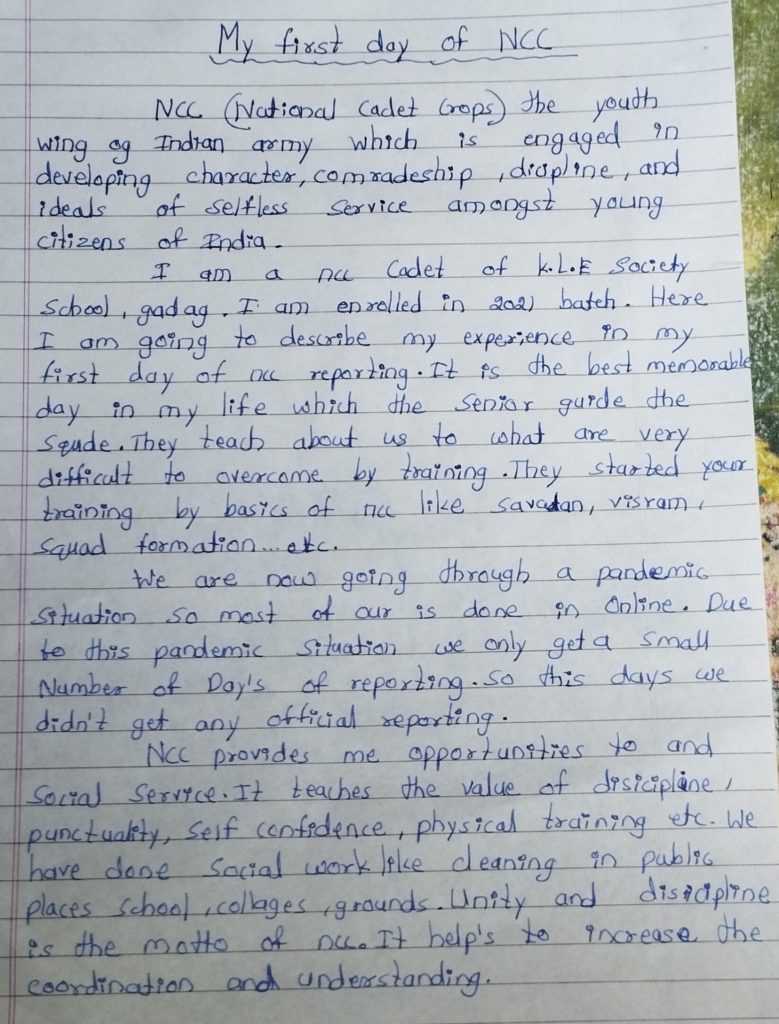 My first day of NCC
NCC (National Cadet Crops) the youth
wing og Indian army which is engaged in
developing character, comradeship, disipline, and
ideals of selfless service amongst young
citizens of India.
I am a ncc Cadet of K.L.E Society
School, gadag. I am enrolled in 2021 batch. Here
I am going to describe my experience in my
first day of ncc reporting. It is the best memorable
day in my life which the Senior guide the
Squde. They teach about us to what are very
difficult to overcome by training. They started your
training by basics of ncc like Savadan, visram,
Squad formation... etc.
We are now going through a pandemic
Situation So most of our is done in Online. Due
to this pandemic Situation we only get a Small
Number of Day's of reporting. So this days we
didn't get any official reporting.
NCC provides me opportunities to and
Social Service. It teaches the value of disicipline,
punctuality, Self confidence, physical training etc. We
have done Social work like cleaning in public
places School, collages, grounds. Unity and disicipline
is the motto of ncc. It help's to increase the
coordination and understanding.